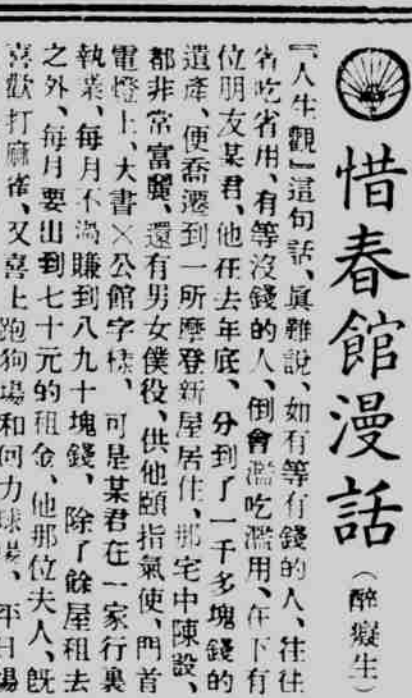 惜春館漫話
（醉癡生）
『人生觀』這句話、眞難說、如有等有錢的人、往往
省吃省用、有等沒錢的人、倒會濫吃濫用、在下有
位朋友某君、他在去年底、分到了一千多塊錢的
遺產、便喬遷到一所摩登新屋居住、那宅中陳設、
都非常富麗、還有男女僕役、供他頤指氣使、門首
電燈上、大書×公館字樣、可是某君在一家行裏
執業、每月不過賺到八九十塊錢、除了餘屋租去
之外、每月要出到七十元的租金、他那位夫人、旣
喜歡打麻雀、又喜上跑狗場和回力球場、平日場